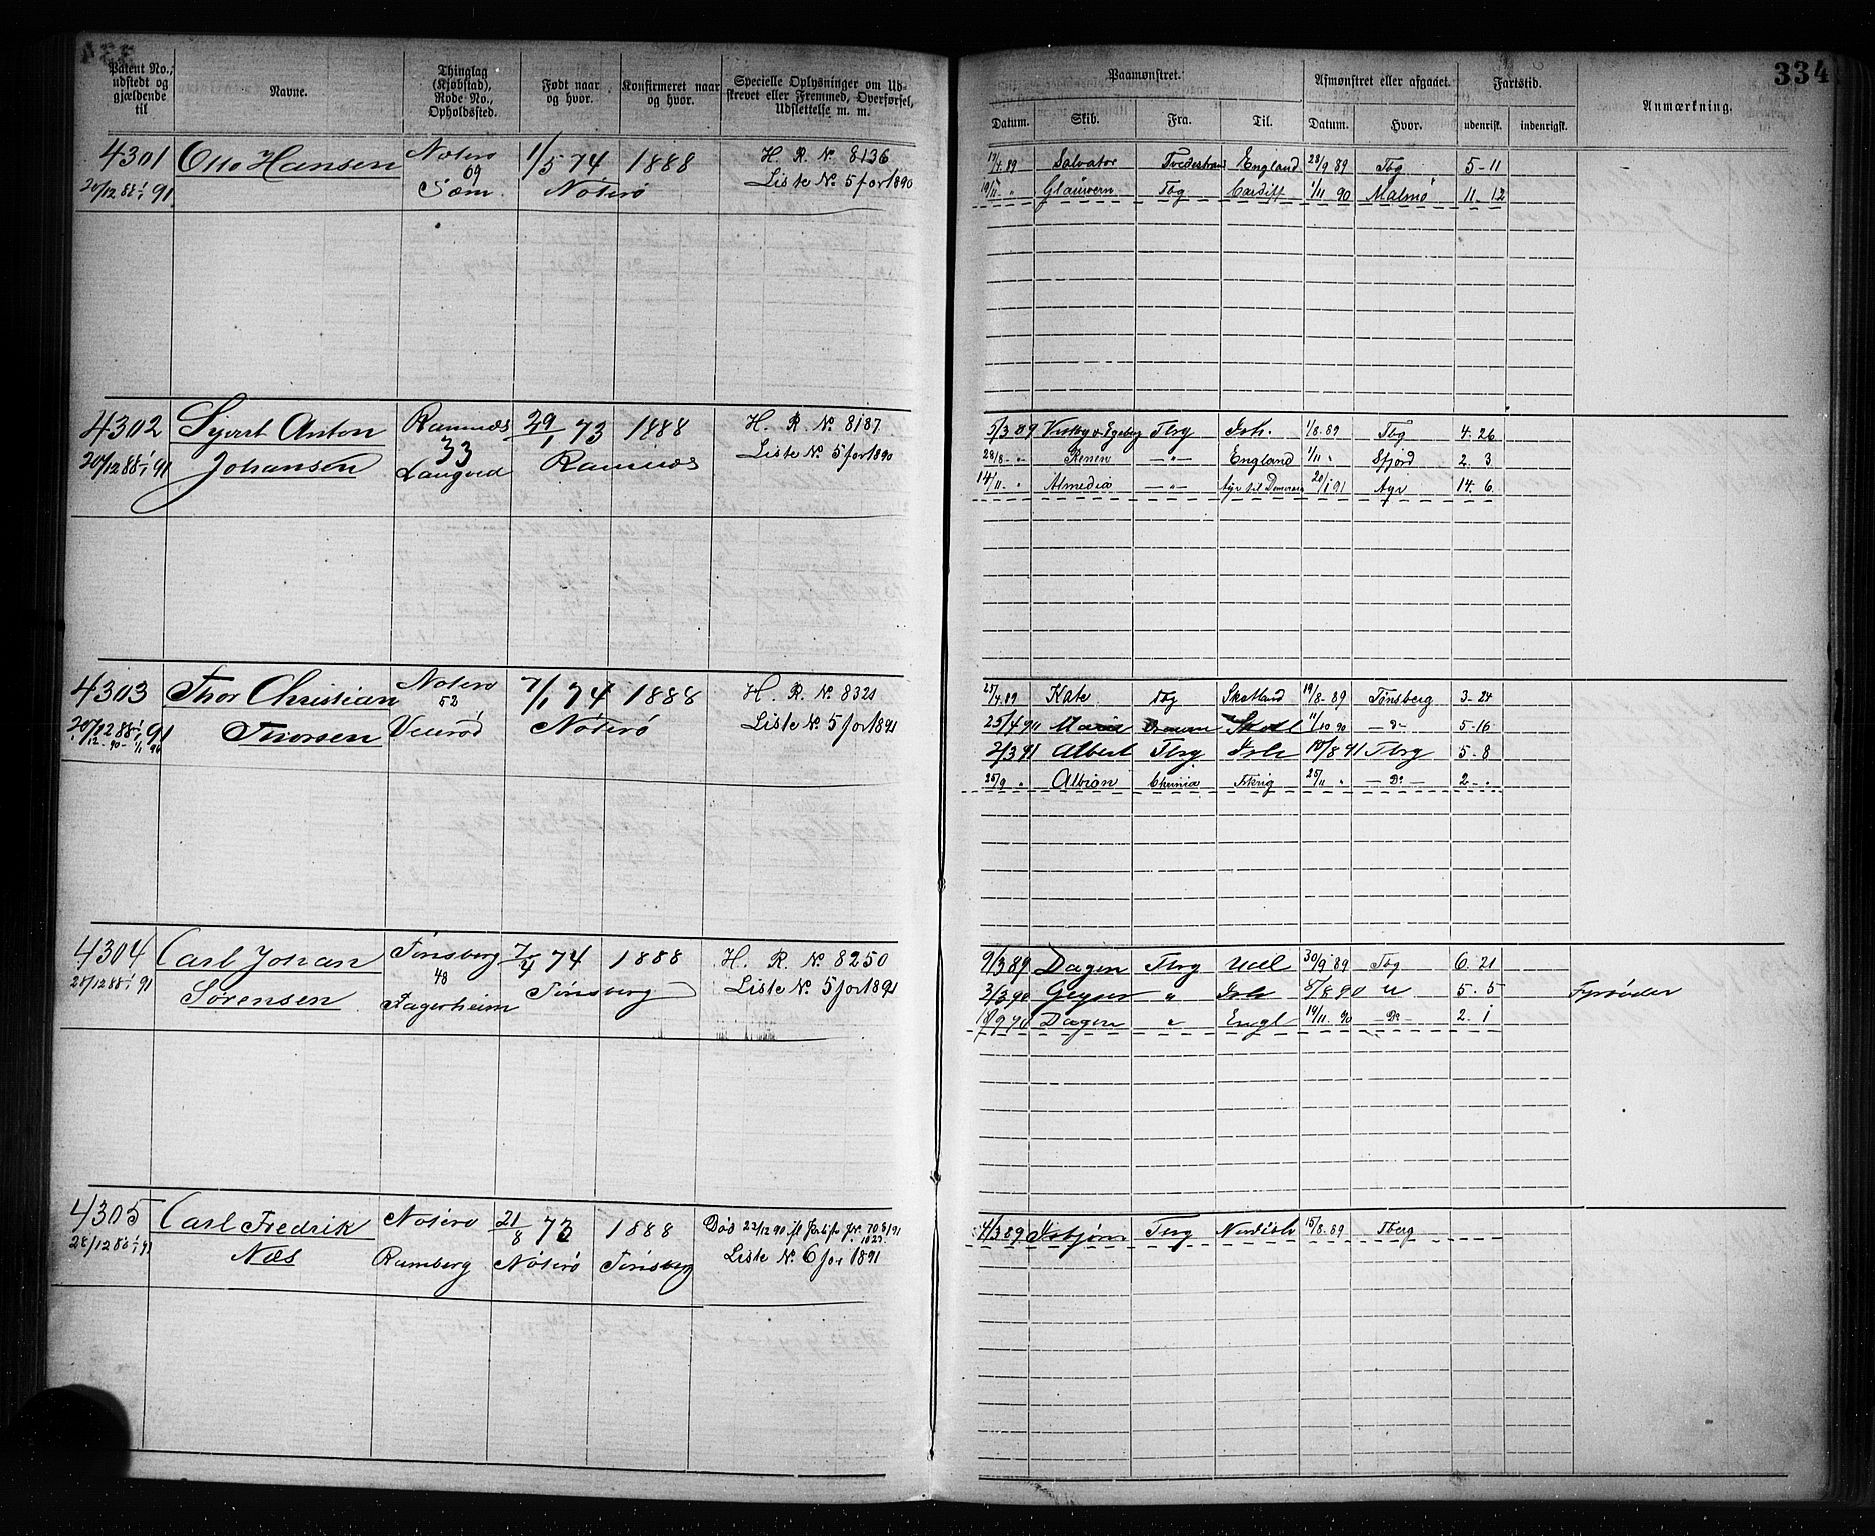 334
Patent No., udstedt og gjældende til
Navne.
Thinglag (Kjøbstad), Rode No., Opholdssted.
Født naar og hvor.
Konfirmeret naar og hvor.
Specielle Oplysninger om Udskrevet eller Fremmed, Overførsel, Udslettelse m. m.
Paamønstret.
Afmønstret eller afgaaet.
Fartstid.
Anmærkning.
Datum. Skib. Fra. Til. Datum. Hvor. udenrigsk. indenrigsk.
4301 Otto Hansen Nøterø 1/5 74 1888 H. R. No. 8136
20/12 88 1/1 91 09 Sæm. Nøterø Liste No. 5 for 1890
17/4 89 Salvator Tvedestrand England 28/9 89 Tbg 5-11
19/11 " Glauvern Tbg Cardiff 1/11 90 Malmø 11-12
4302 Sjert Anton Ramnæs 29/1 73 1888 H. R. No. 8187
20/12 88 1/1 91 Johansen 33 Langved Ramnæs Liste No. 5 for 1890
5/3 89 Tbrg Ish. 1/8 89 Tbg 4. 26
28/8 - " - Renen - " - England 1/11 " Sfjord 2. 3
14/11 - " Almedia - " - Ayr til Demerara 20/1 91 Ayr 14. 6
4303 Thor Christian Nøterø 7/1 74 1888 H. R. No. 8321
20/12 88 1/1 91 Thorsen 52 Vellrød Nøterø Liste No. 5 for 1891
25/4 89 Kate Tbg Skotland 19/8 - 89 Tønsberg 3-24
25/4 90 Maria Skotl 11/10 90 - D - 5-16
2/3 91 Albert Tbrg Ish 10/8 91 Tbrg 5-8
25/9 " Albion Chrnia 25/11 " - Do - 2 - "
4304 Carl Johan Tønsberg 7/4 74 1888 H. R. No. 8250
20/12 88 1/1 91 Sørensen 48 Fagerheim Tønsberg Liste No. 5 for 1891
9/3 89 Dagen Tbrg Udl 30/9 89 Tbg 6. 21
3/3 90 Geyser " Ish 8/8 90 " 5. 5 Fyrbøder
18/9 90 Dagen " Engl 19/11 90 - Do - 2. 1
4305 Carl Fredrik Nøterø 21/8 73 1888 Død 22/12 90
28/12 88 1/1 91 Næs Ramberg Nøterø Tønsberg Liste No. 6 for 1891
4/3 89 Isbjørn Tbrg Nordish 15/8 89 Tberg